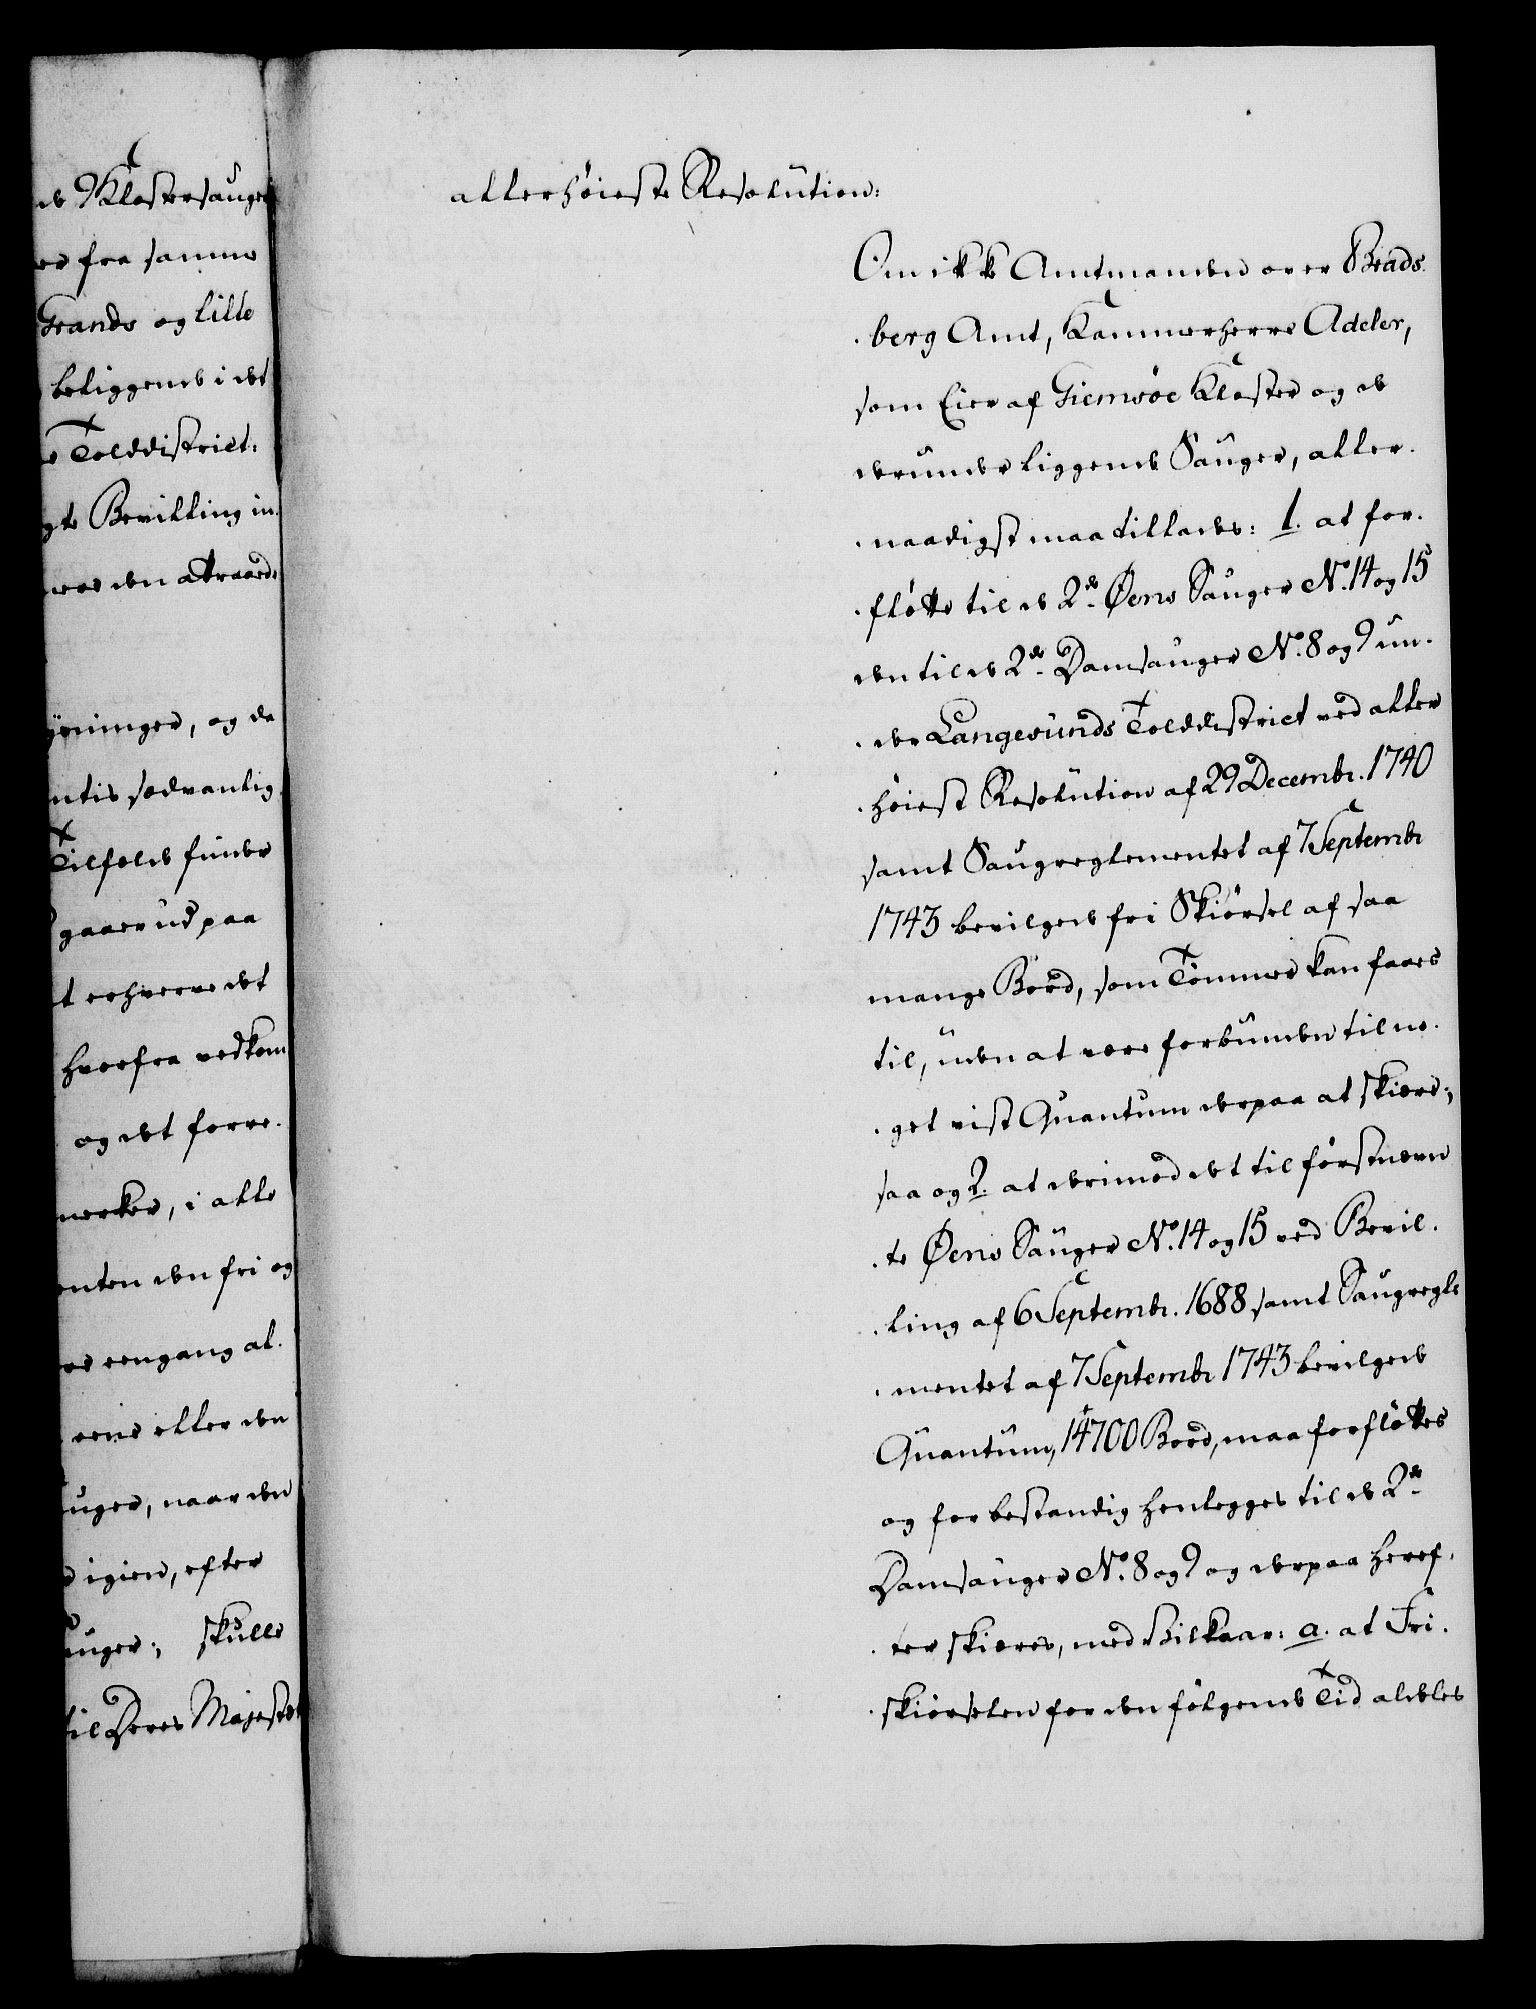 de 9 Klostersauge
es fra samme
Strands og lille
beliggende i det
Tolddistrict.
gte Bevilling in¬
den attraaede
ysninger, og da
ntis sædvanlig
Tilfælde finder
gaaer ud paa
t erhverve det
hvorfra vedkom
og det forre¬
merker, i alle
enten den fri og
eengang al¬
eene eller den
uger, naar den
igien, efter
auger; skulle
til Deres Majestæt
allerhöieste Resolution:
Om ikke Amtmanden over Brads¬
berg Amt, Kammerherre Adeler,
som Eier af Giemsöe Kloster og de
derunder liggende Sauger, aller¬
naadigst maa tillades: 1. at for¬
flötte til de 2de Øens Sauger No. 14 og 15
den til de 2de Damsauger No. 8 og 9 un¬
der Langesunds Tolddistrict ved aller
höiest Resolution af 29 Decembr. 1740
samt Saugreglementet af 7 Septembr
1743 bevilgede fri Skiörsel af saa
mange Bord, som Tömmer kan faaes
til, uden at være forbunden til no¬
get vist Quantum derpaa at skiære;
saa og 2. at derimod det til förstnævn
te Øens Sauger No. 14 og 15 ved Bevil¬
ling af 6 Septembr. 1688 samt Saugregle
mentet af 7 Septembr 1743 bevilgede
Quantum, 14700 Bord, maa forflöttes
og for bestandig henlegges til de 2de
Damsauger No. 8 og 9 og derpaa heref¬
ter skiæres, med Vilkaar: a. at Fri¬
skiörselen for den fölgende Tid aldeles